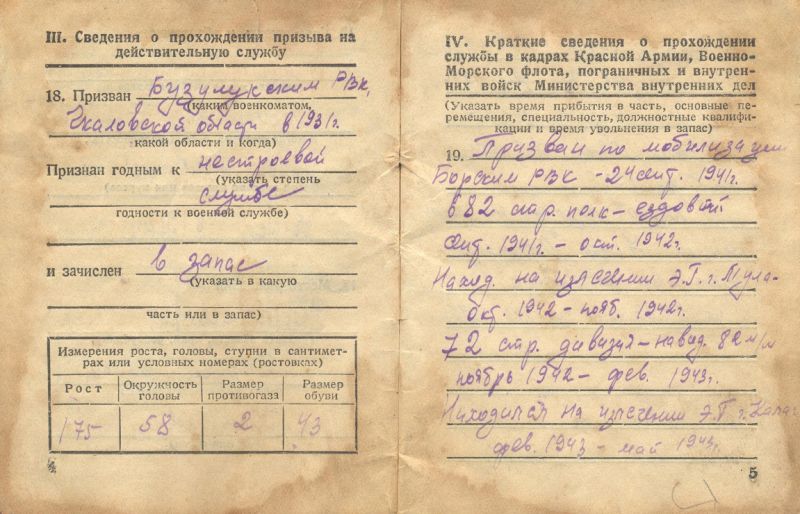 III. Сведения о прохождении призыва на
действительную службу
18. Призван Бузулукским РВК,
(каким военкоматом,
Чкаловской области в 1931г.
какой области и когда)
Признан годным к нестроевой
(указать степень
службе
годности к военной службе)
и зачислен в запас
(указать в какую
часть или в запас)
Измерения роста, головы, ступни в сантимет-
рах или условных номерах (ростовках)
Рост Окружность головы Размер противогаза Размер обуви
175 58 2 43
4
IV. Краткие сведения о прохождении
службы в кадрах Красной Армии, Военно-
Морского флота, пограничных и внутрен-
них войск Министерства внутренних дел
(Указать время прибытия в часть, основные пе-
ремещения, специальность, должностные квалифи-
кации и время увольнения в запас)
19. Призван по мобилизации
Борским РВК - 24 сент. 1941г.
в 82 стр. полк - ездовой
сент. 1941г. - окт. 1942г.
Наход. на излечении Э.Г. г. Тула-
окт. 1942 - нояб. 1942г.
72 стр. дивизия - навод. 82 м/м
ноябрь 1942 - фев. 1943г.
Находился на излечении Э.Г. г.
фев. 1943 - май 1943г.
5